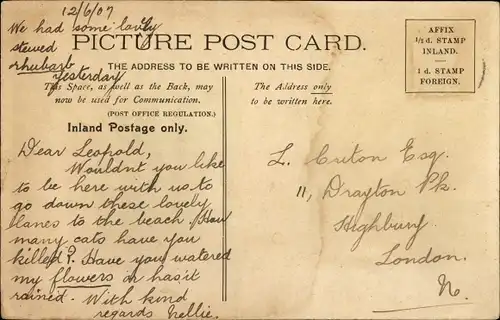 12/6/07
We had some lovely
stewed
rhubarb
yesterday
PICTURE POST CARD.
THE ADDRESS TO BE WRITTEN ON THIS SIDE.
AFFIX
½ d. STAMP
INLAND.
1 d. STAMP
FOREIGN.
This Space, as well as the Back, may
now be used for Communication.
(POST OFFICE REGULATION.)
Inland Postage only.
The Address only
to be written here.
Dear Leopold,
Wouldnt you like
to be here with us to
go down these lovely
lanes to the beach How
many cats have you
killed? Have you watered
my flowers or has it
rained. With kind
regards Nellie.
L. Esq.
11, Drayton Pk.
Highbury
London.
N.